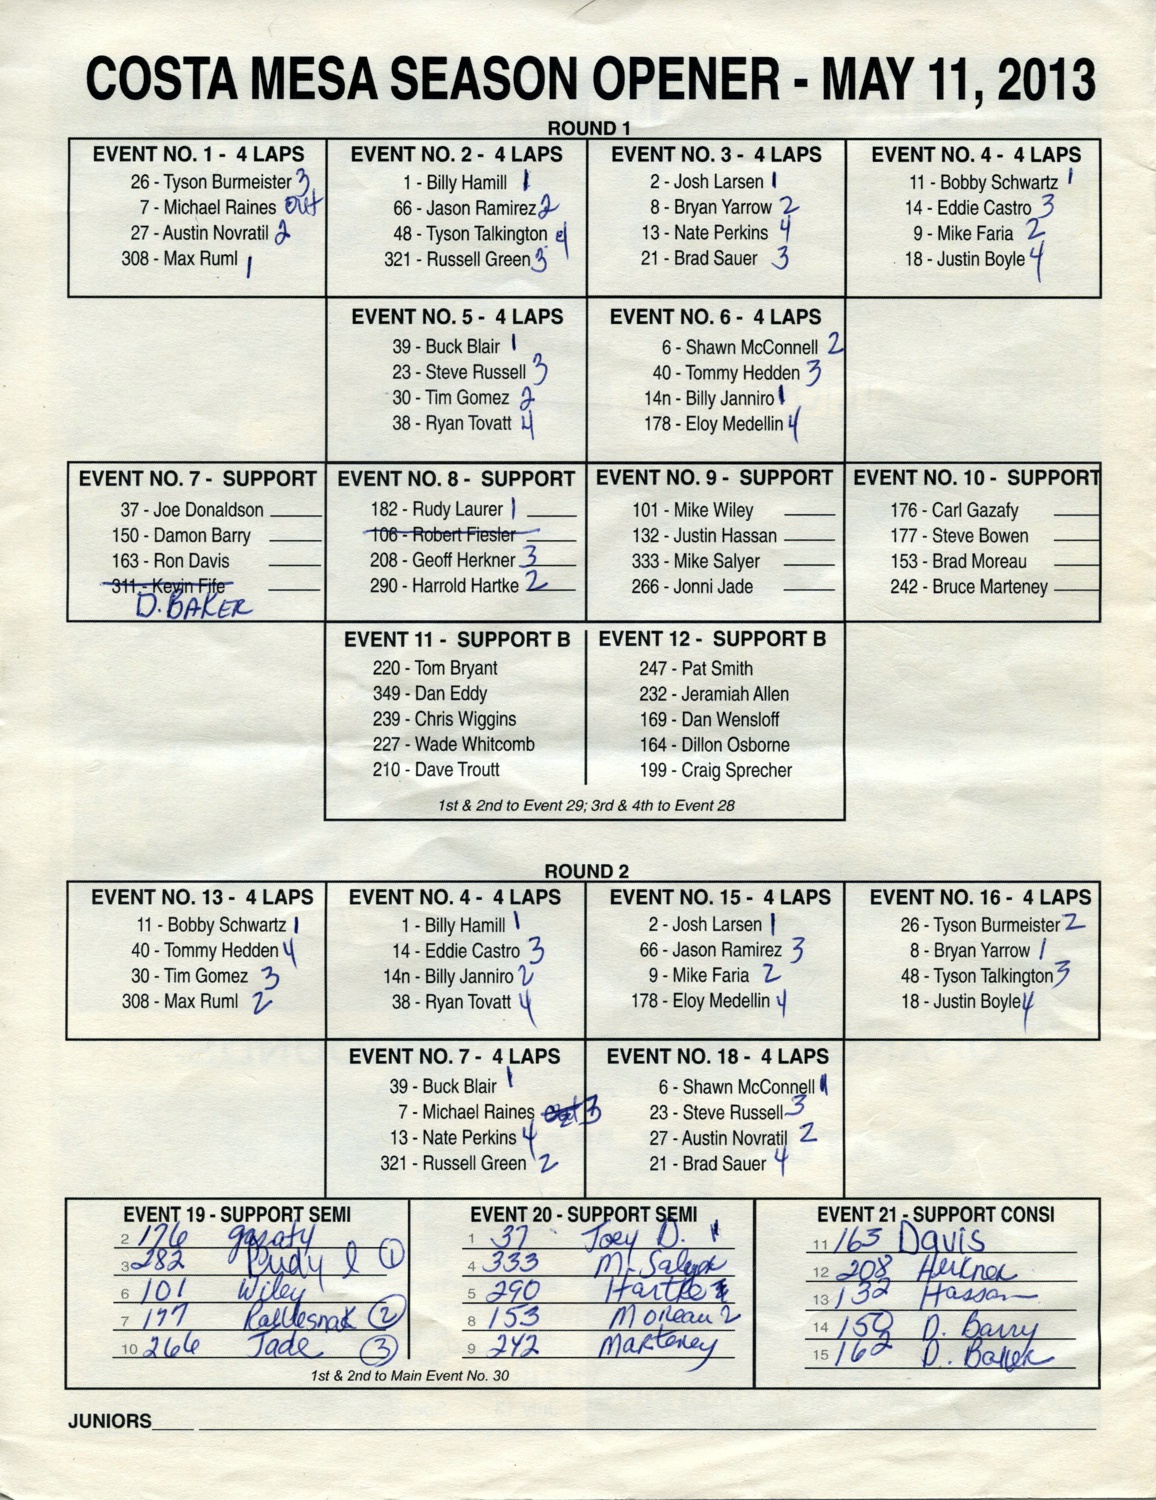 COSTA MESA SEASON OPENER - MAY 11, 2013
ROUND 1
EVENT NO. 1 - 4 LAPS
26 - Tyson Burmeister 3
7 - Michael Raines out
27 - Austin Novratil 2
308 - Max Ruml 1
EVENT NO. 2 - 4 LAPS
1 - Billy Hamill 1
66 - Jason Ramirez 2
48 - Tyson Talkington 4
321 - Russell Green 3
EVENT NO. 3 - 4 LAPS
2 - Josh Larsen 1
8 - Bryan Yarrow 2
13 - Nate Perkins 4
21 - Brad Sauer 3
EVENT NO. 4 - 4 LAPS
11 - Bobby Schwartz 1
14 - Eddie Castro 3
9 - Mike Faria 2
18 - Justin Boyle 4
EVENT NO. 5 - 4 LAPS
39 - Buck Blair 1
23 - Steve Russell 3
30 - Tim Gomez 2
38 - Ryan Tovatt 4
EVENT NO. 6 - 4 LAPS
6 - Shawn McConnell 2
40 - Tommy Hedden 3
14n - Billy Janniro 1
178 - Eloy Medellin 4
EVENT NO. 7 - SUPPORT
37 - Joe Donaldson
150 - Damon Barry
163 - Ron Davis
311 - Kevin Fife
D. BAKER
EVENT NO. 8 - SUPPORT
182 - Rudy Laurer 1
106 - Robert Fiesler
208 - Geoff Herkner 3
290 - Harrold Hartke 2
EVENT NO. 9 - SUPPORT
101 - Mike Wiley
132 - Justin Hassan
333 - Mike Salyer
266 - Jonni Jade
EVENT NO. 10 - SUPPORT
176 - Carl Gazafy
177 - Steve Bowen
153 - Brad Moreau
242 - Bruce Marteney
EVENT 11 - SUPPORT B
220 - Tom Bryant
349 - Dan Eddy
239 - Chris Wiggins
227 - Wade Whitcomb
210 - Dave Troutt
EVENT 12 - SUPPORT B
247 - Pat Smith
232 - Jeramiah Allen
169 - Dan Wensloff
164 - Dillon Osborne
199 - Craig Sprecher
1st & 2nd to Event 29; 3rd & 4th to Event 28
ROUND 2
EVENT NO. 13 - 4 LAPS
11 - Bobby Schwartz 1
40 - Tommy Hedden 4
30 - Tim Gomez 3
308 - Max Ruml 2
EVENT NO. 4 - 4 LAPS
1 - Billy Hamill 1
14 - Eddie Castro 3
14n - Billy Janniro 2
38 - Ryan Tovatt 4
EVENT NO. 15 - 4 LAPS
2 - Josh Larsen 1
66 - Jason Ramirez 3
9 - Mike Faria 2
178 - Eloy Medellin 4
EVENT NO. 16 - 4 LAPS
26 - Tyson Burmeister 2
8 - Bryan Yarrow 1
48 - Tyson Talkington 3
18 - Justin Boyle 4
EVENT NO. 7 - 4 LAPS
39 - Buck Blair 1
7 - Michael Raines out 3
13 - Nate Perkins 4
321 - Russell Green 2
EVENT NO. 18 - 4 LAPS
6 - Shawn McConnell 1
23 - Steve Russell 3
27 - Austin Novratil 2
21 - Brad Sauer 4
EVENT 19 - SUPPORT SEMI
2 176 gazafy
3 282 Rudy l 1
6 101 Wiley
7 177 Rattlesnak 2
10 266 Jade 3
EVENT 20 - SUPPORT SEMI
1 37 Joey D. 1
4 333 M. Salyer
5 290 Hartke
8 153 Moreau 2
9 242 Marteney
1st & 2nd to Main Event No. 30
EVENT 21 - SUPPORT CONSI
11 163 Davis
12 208 Herkner
13 132 Hassan
14 150 D. Barry
15 162 D. Baker
JUNIORS